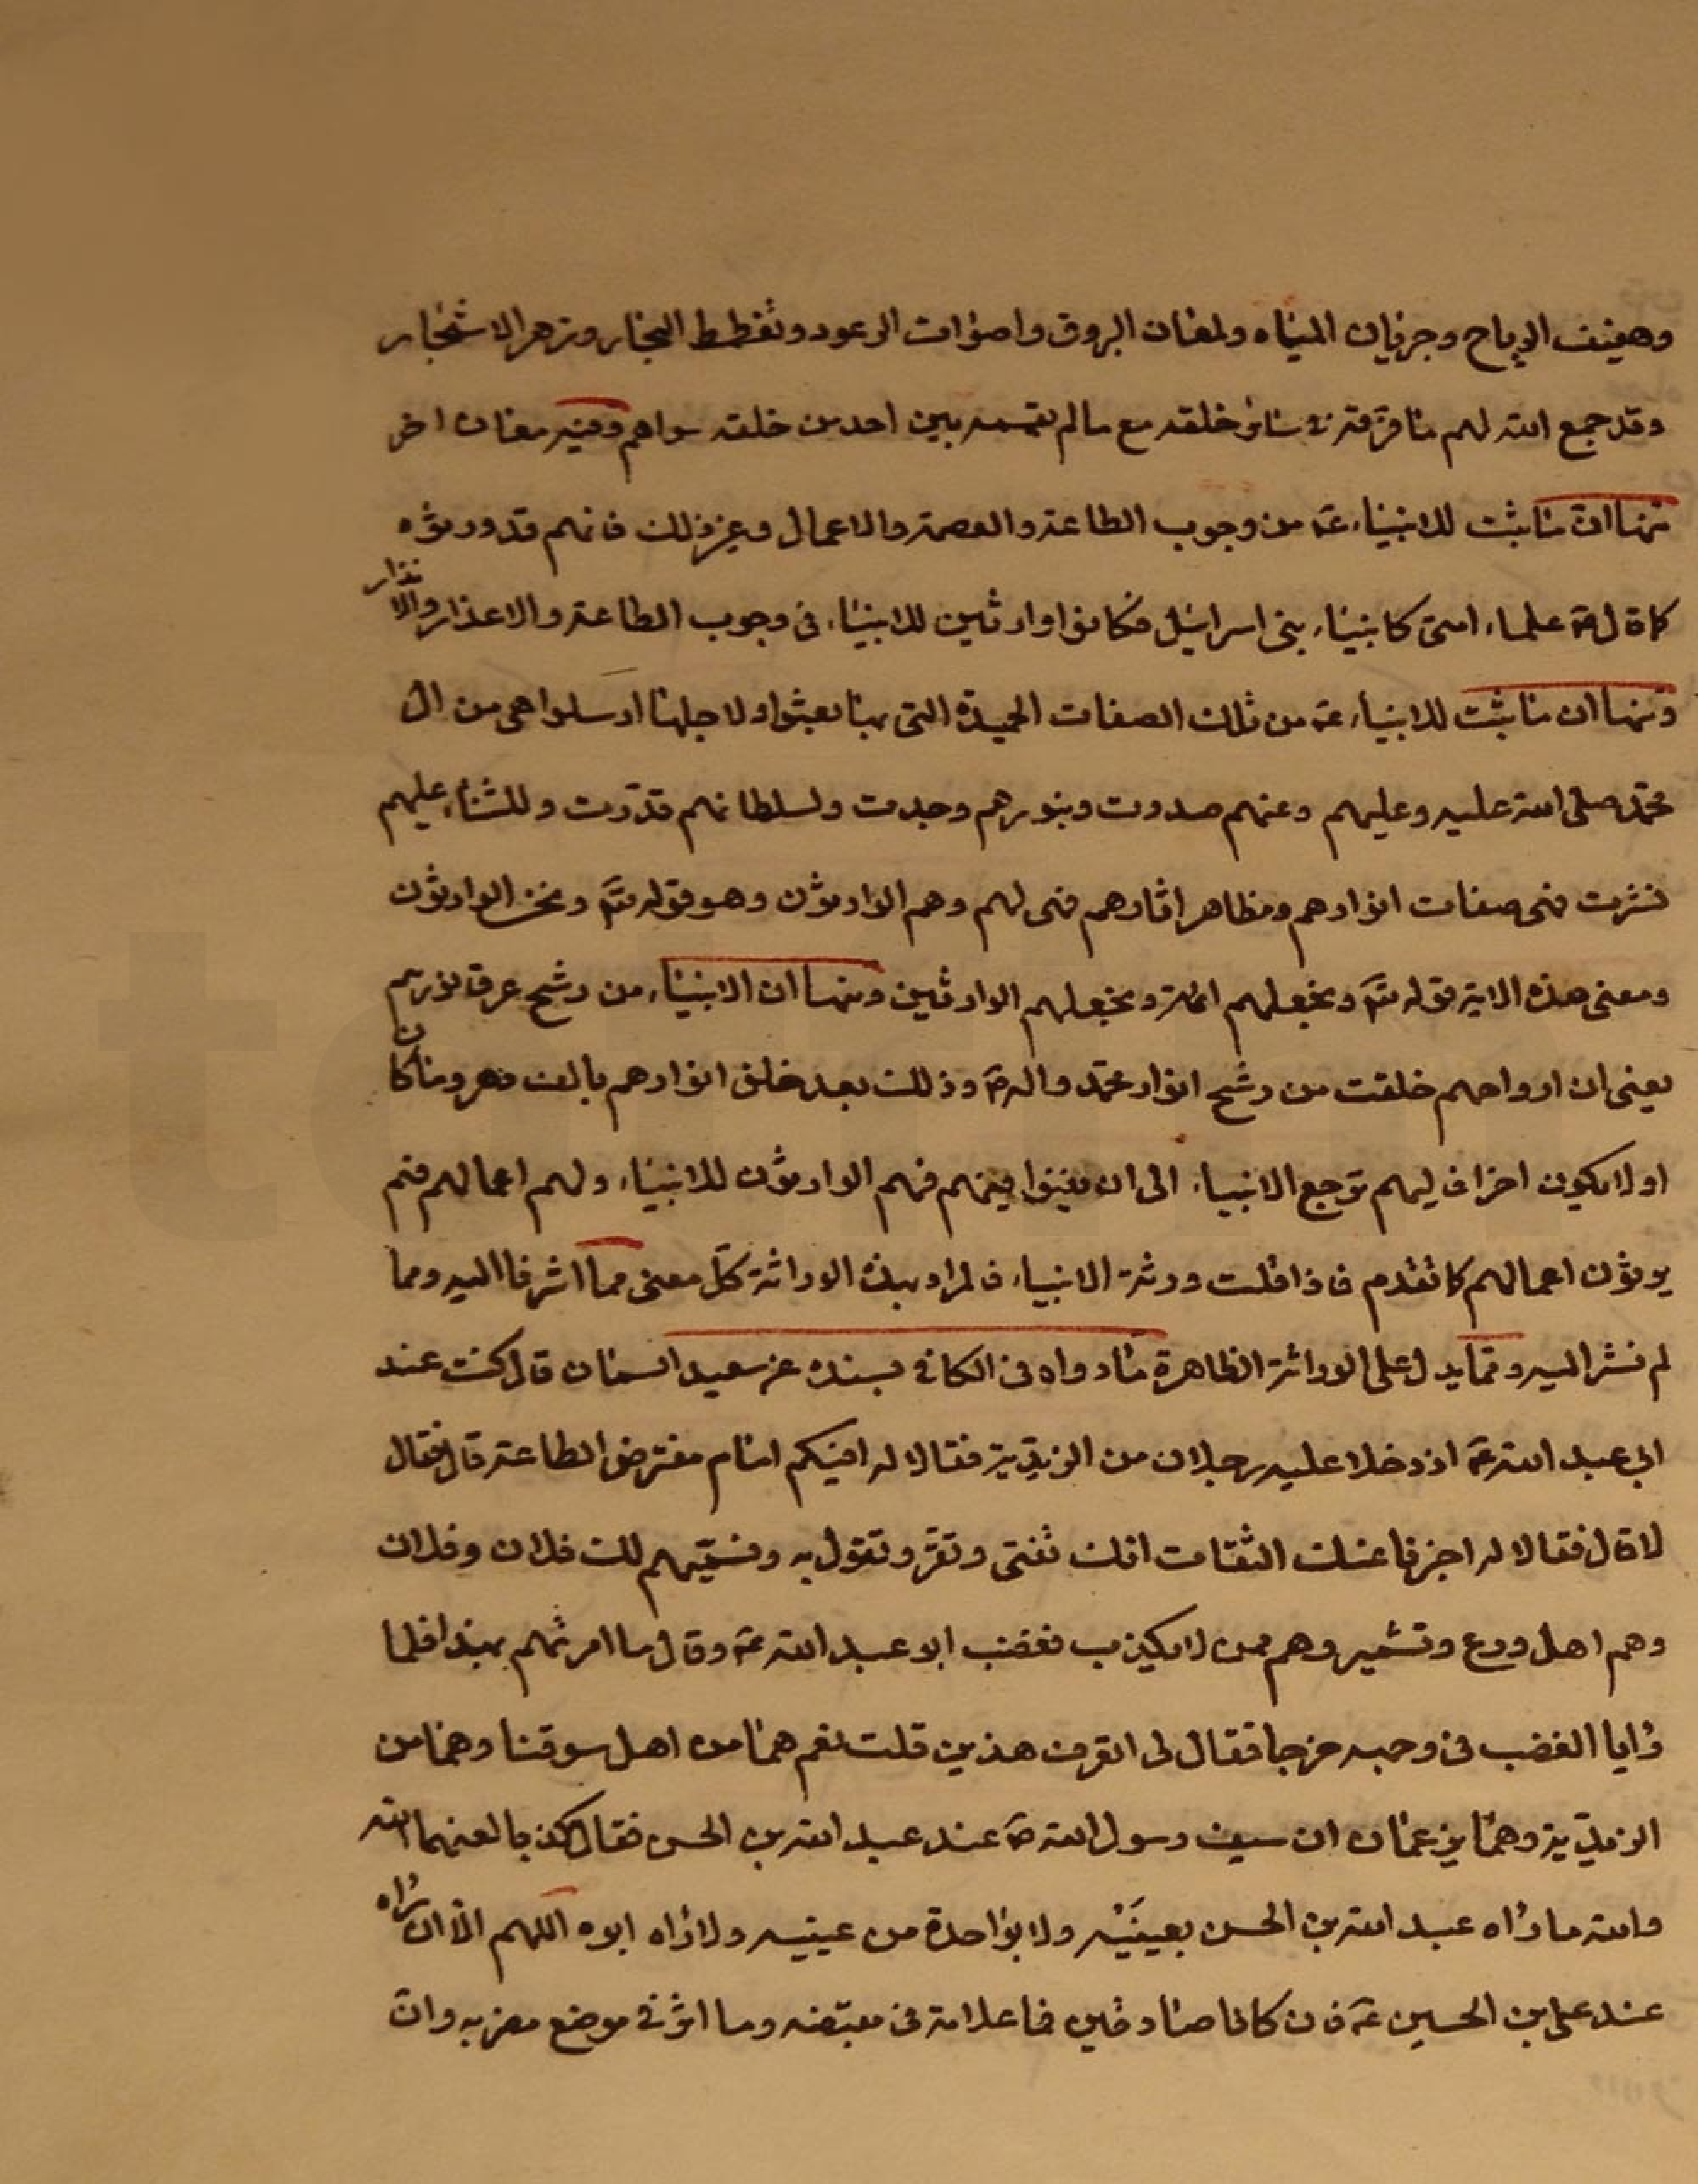 وهفيف الرياح وجريان المياه ولمعان البروق واصوات الرعود وتغطمط البحار وزهر الاشجار
وقد جمع الله لهم ما فرّقه فى سائر خلقه مع ما لم يقسمه بين احد من خلقه سواهم وفيه معان اخر
منها انّ ما ثبت للانبياء ع من وجوب الطاعة والعصمة والاعمال وغير ذلك فانهم قد ورثوه
كما قال ص علماء امتى كانبياء بنى اسرائيل فكانوا وارثين للانبياء فى وجوب الطاعة والاعذار والانذار
ومنها ان ما ثبت للانبياء ع من تلك الصفات الحميدة التى بها بعثوا ولاجلها ارسلوا هى من ال
محمّد صلى الله عليه وعليهم وعنهم صدرت وبنورهم وجدت ولسلطانهم قدّرت وللثناء عليهم
نشرت فهى صفات انوارهم ومظاهر اثارهم فهى لهم وهم الوارثون وهو قوله تعَ ونحن الوارثون
ومعنى هذه الاية قوله تعَ ونجعلهم ائمة ونجعلهم الوارثين ومنها ان الانبياء من رشح عرق نورهم
يعنى ان ارواحهم خلقت من رشح انوار محمّد واله ص وذلك بعد خلق انوارهم بالف دهر وما كان
اولا يكون اخرا فاليهم ترجع الانبياء الى ان يفنوا فيهم فهم الوارثون للانبياء ولهم اعمالهم فهم
يرثون اعمالهم كما تقدم فاذا قلت ورثة الانبياء فالمراد بهذه الوراثة كلّ معنى مما اشرنا اليه ومما
لم نشر اليه وممّا يدل على الوراثة الظاهرة ما رواه فى الكافى بسنده عن سعيد السمان قال كنت عند
ابى عبد الله ع اذ دخلا عليه رجلان من الزيدية فقالا له افيكم امام مفترض الطاعة قال فقال
لا قال فقالا له اخبرنا عنك الثقات انك تفتى وتقرّ وتقول به ونسمّيهم لك فلان وفلان
وهم اهل ورع وتشمير وهم ممن لا يكذب فغضب ابو عبد الله ع وقال ما امرتهم بهذا فلما
رأيا الغضب فى وجهه خرجا فقال لى اتعرف هذين قلت نعم هما من اهل سوقنا وهما من
الزيدية وهما يزعمان ان سيف رسول الله ص عند عبد الله بن الحسن فقال كذبا لعنهما الله
والله ما رأاه عبد الله بن الحسن بعينَيْه ولا بواحدة من عينيه ولا رأاه ابوه اللهم الّا ان رأاه
عند على بن الحسين ع فان كانا صادقين فما علامة فى مقبضه وما اثر فى موضع مضربه وانّ